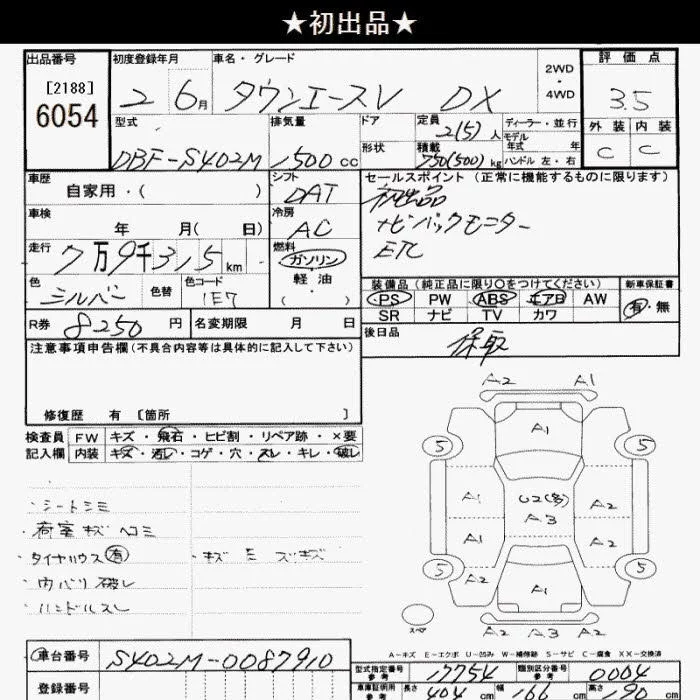 ★初出品★
出品番号 初度登録年月 車名・グレード 2WD・4WD 評価点
[2188]
6054 2 6月 タウンエースV DX 3.5
型式 排気量 ドア 定員 2(5)人 ディーラー・並行 外装 内装
モデル年式 年
DBF-S402M 1500cc 形状 積載 750(500)kg ハンドル 左・右 C C
車歴 シフト セールスポイント(正常に機能するものに限ります)
自家用・( ) DAT 初出品
車検 冷房 ナビバックモニター
年 月( 日) AC ETC
走行 燃料
7万9千315km ガソリン
色 色替 色コード 軽油 装備品(純正品に限り○をつけてください) 新車保証書
シルバー 1E7 ( ) PS PW ABS エアB AW 有・無
SR ナビ TV カワ
R券 8250円 名変期限 月 日 後日品
保取
注意事項申告欄(不具合内容等は具体的に記入して下さい)
修復歴 有 〔箇所 〕
検査員 FW キズ・飛石・ヒビ割・リペア跡・×要
記入欄 内装 キズ・汚レ・コゲ・穴・スレ・キレ・破レ
・シートシミ
・荷室キズヘコミ
・タイヤハウス有 ・キズ
・内バリ破レ
・ハンドルスレ
A2 A1
A1
5 5
A1 U2(多) A2
A3
A1 A2
5 5
A2 A2
A1
スペア
A2 A3 A2
A-キズ E-エクボ U-凹み W-補修跡 S-サビ C-腐食 XX-交換済
車台番号 S402M-0087910 型式指定番号 参考 17754 類別区分番号 参考 0004
登録番号 車庫証明用 参考 長さ 404cm 幅 166cm 高さ 190cm